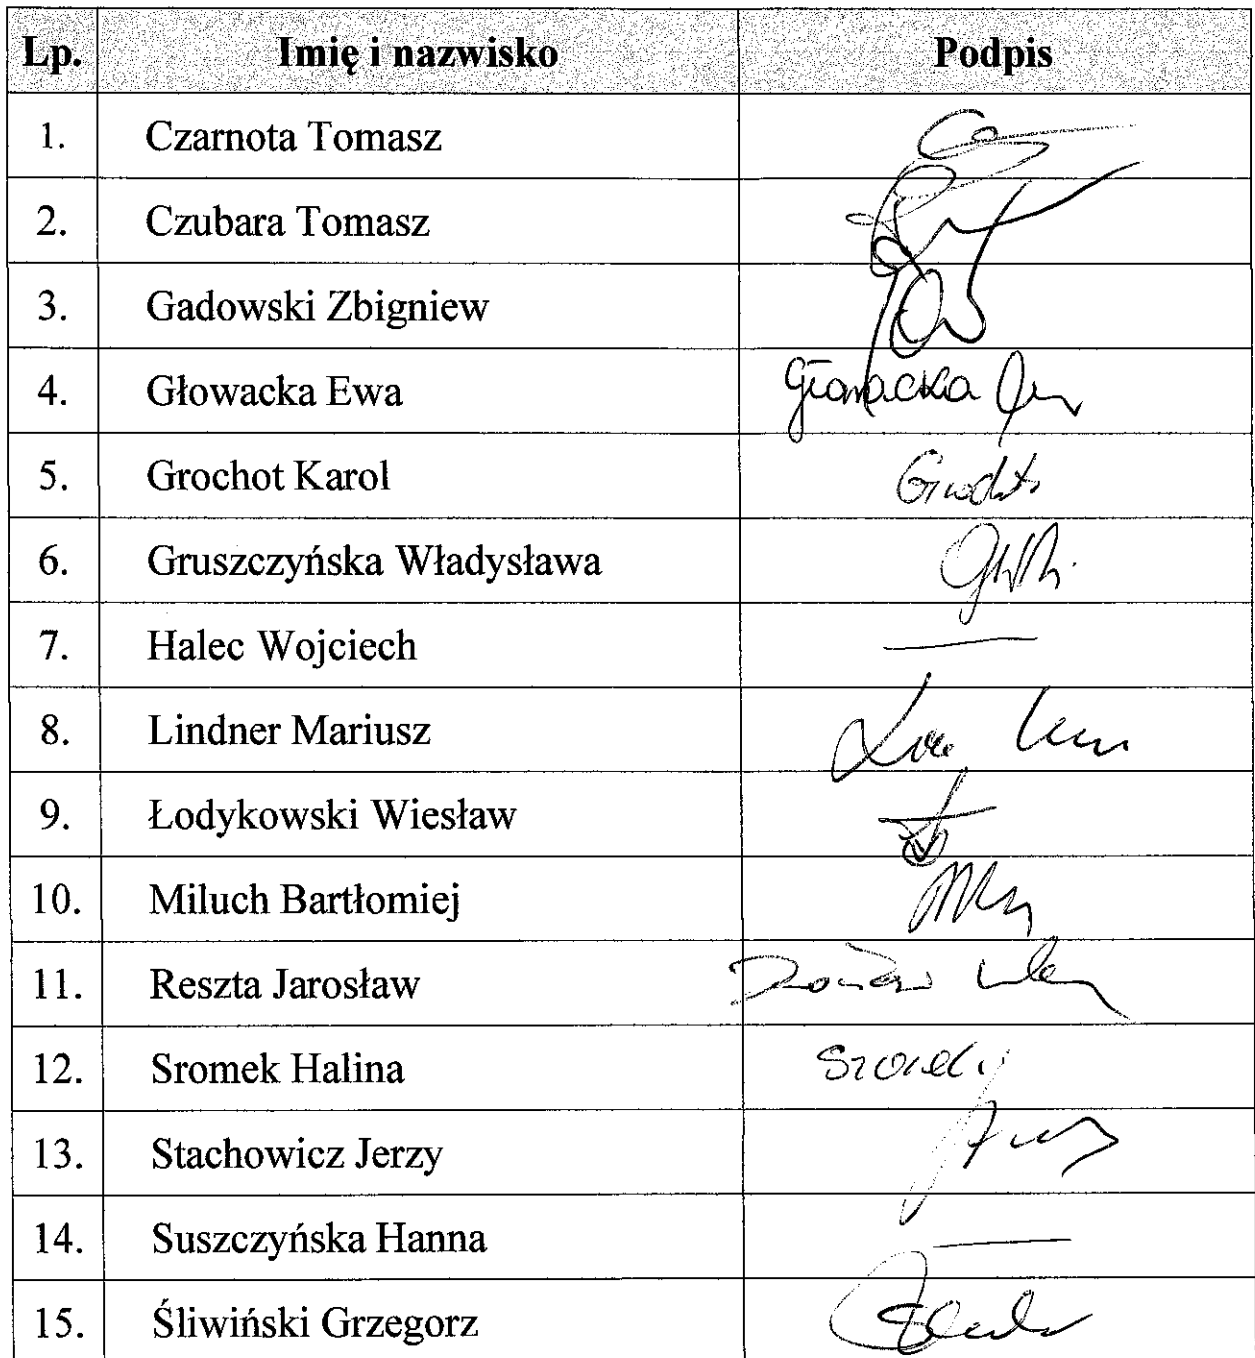 Lp. Imię i nazwisko Podpis
1. Czarnota Tomasz
2. Czubara Tomasz
3. Gadowski Zbigniew
4. Głowacka Ewa Głowacka
5. Grochot Karol
6. Gruszczyńska Władysława
7. Halec Wojciech —
8. Lindner Mariusz
9. Łodykowski Wiesław
10. Miluch Bartłomiej
11. Reszta Jarosław
12. Sromek Halina
13. Stachowicz Jerzy
14. Suszczyńska Hanna —
15. Śliwiński Grzegorz